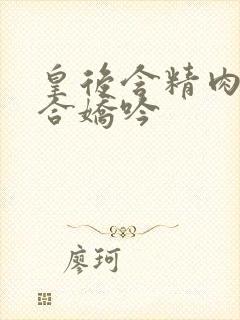 皇後含精肉
合嬌吟
廖珂